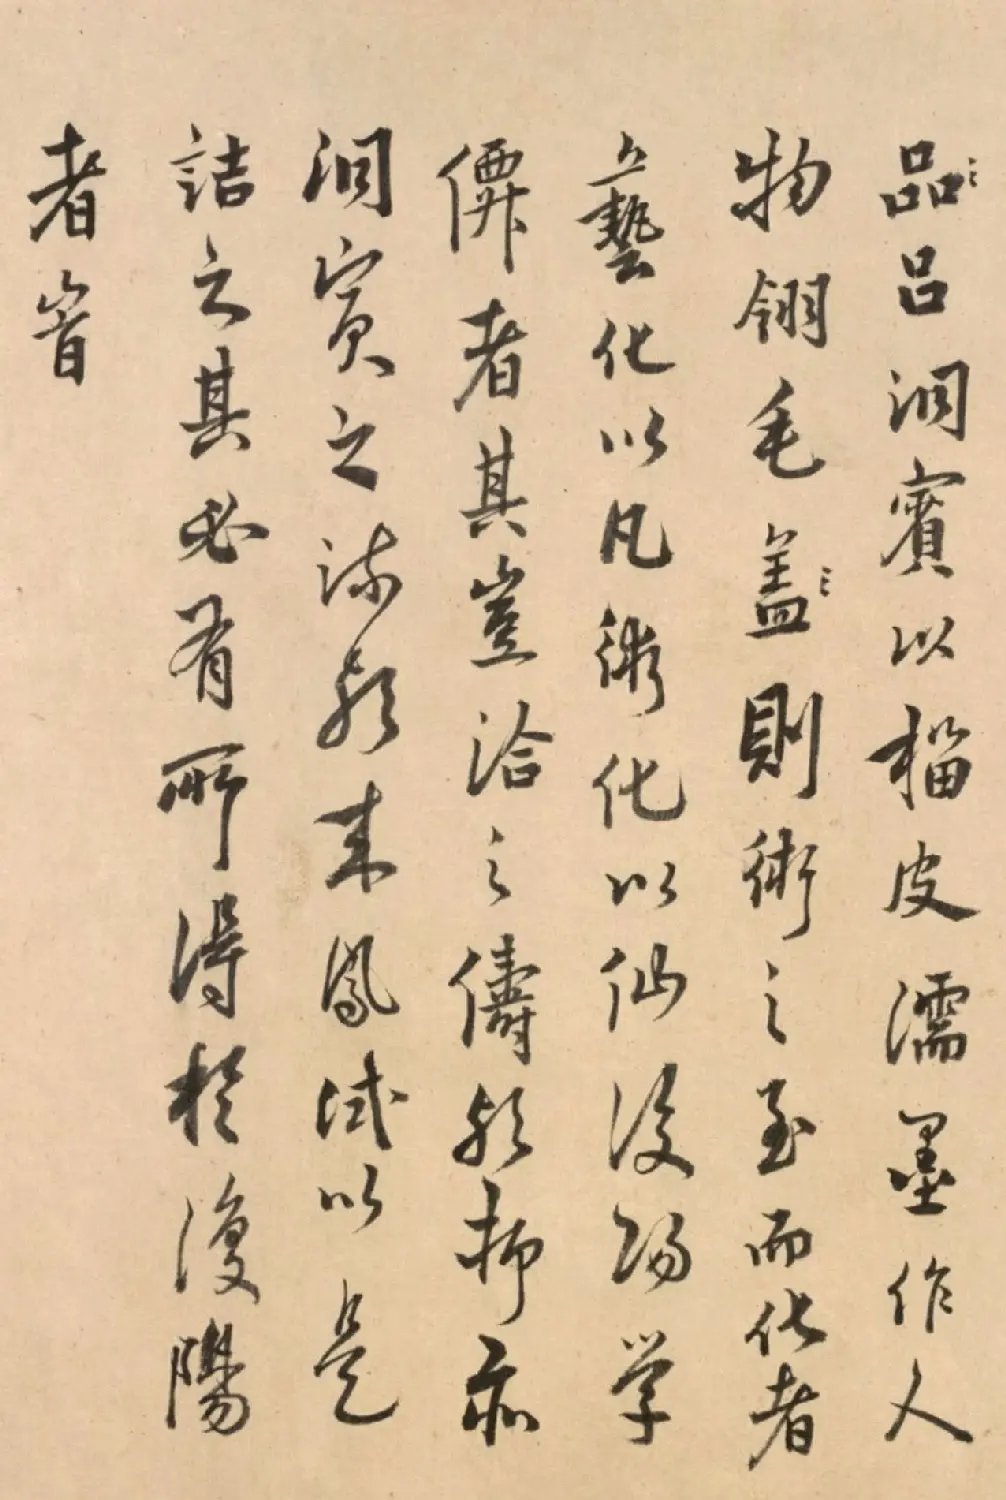 品呂洞賓以榴皮濡墨作人
物翎毛盖則術之至而化者
藝化以凡術化以仙復陽学
僊者其豈洽之儔歟抑亦
洞賓之流歟来鳳試以是
詰之其必有所得於復陽
者峕